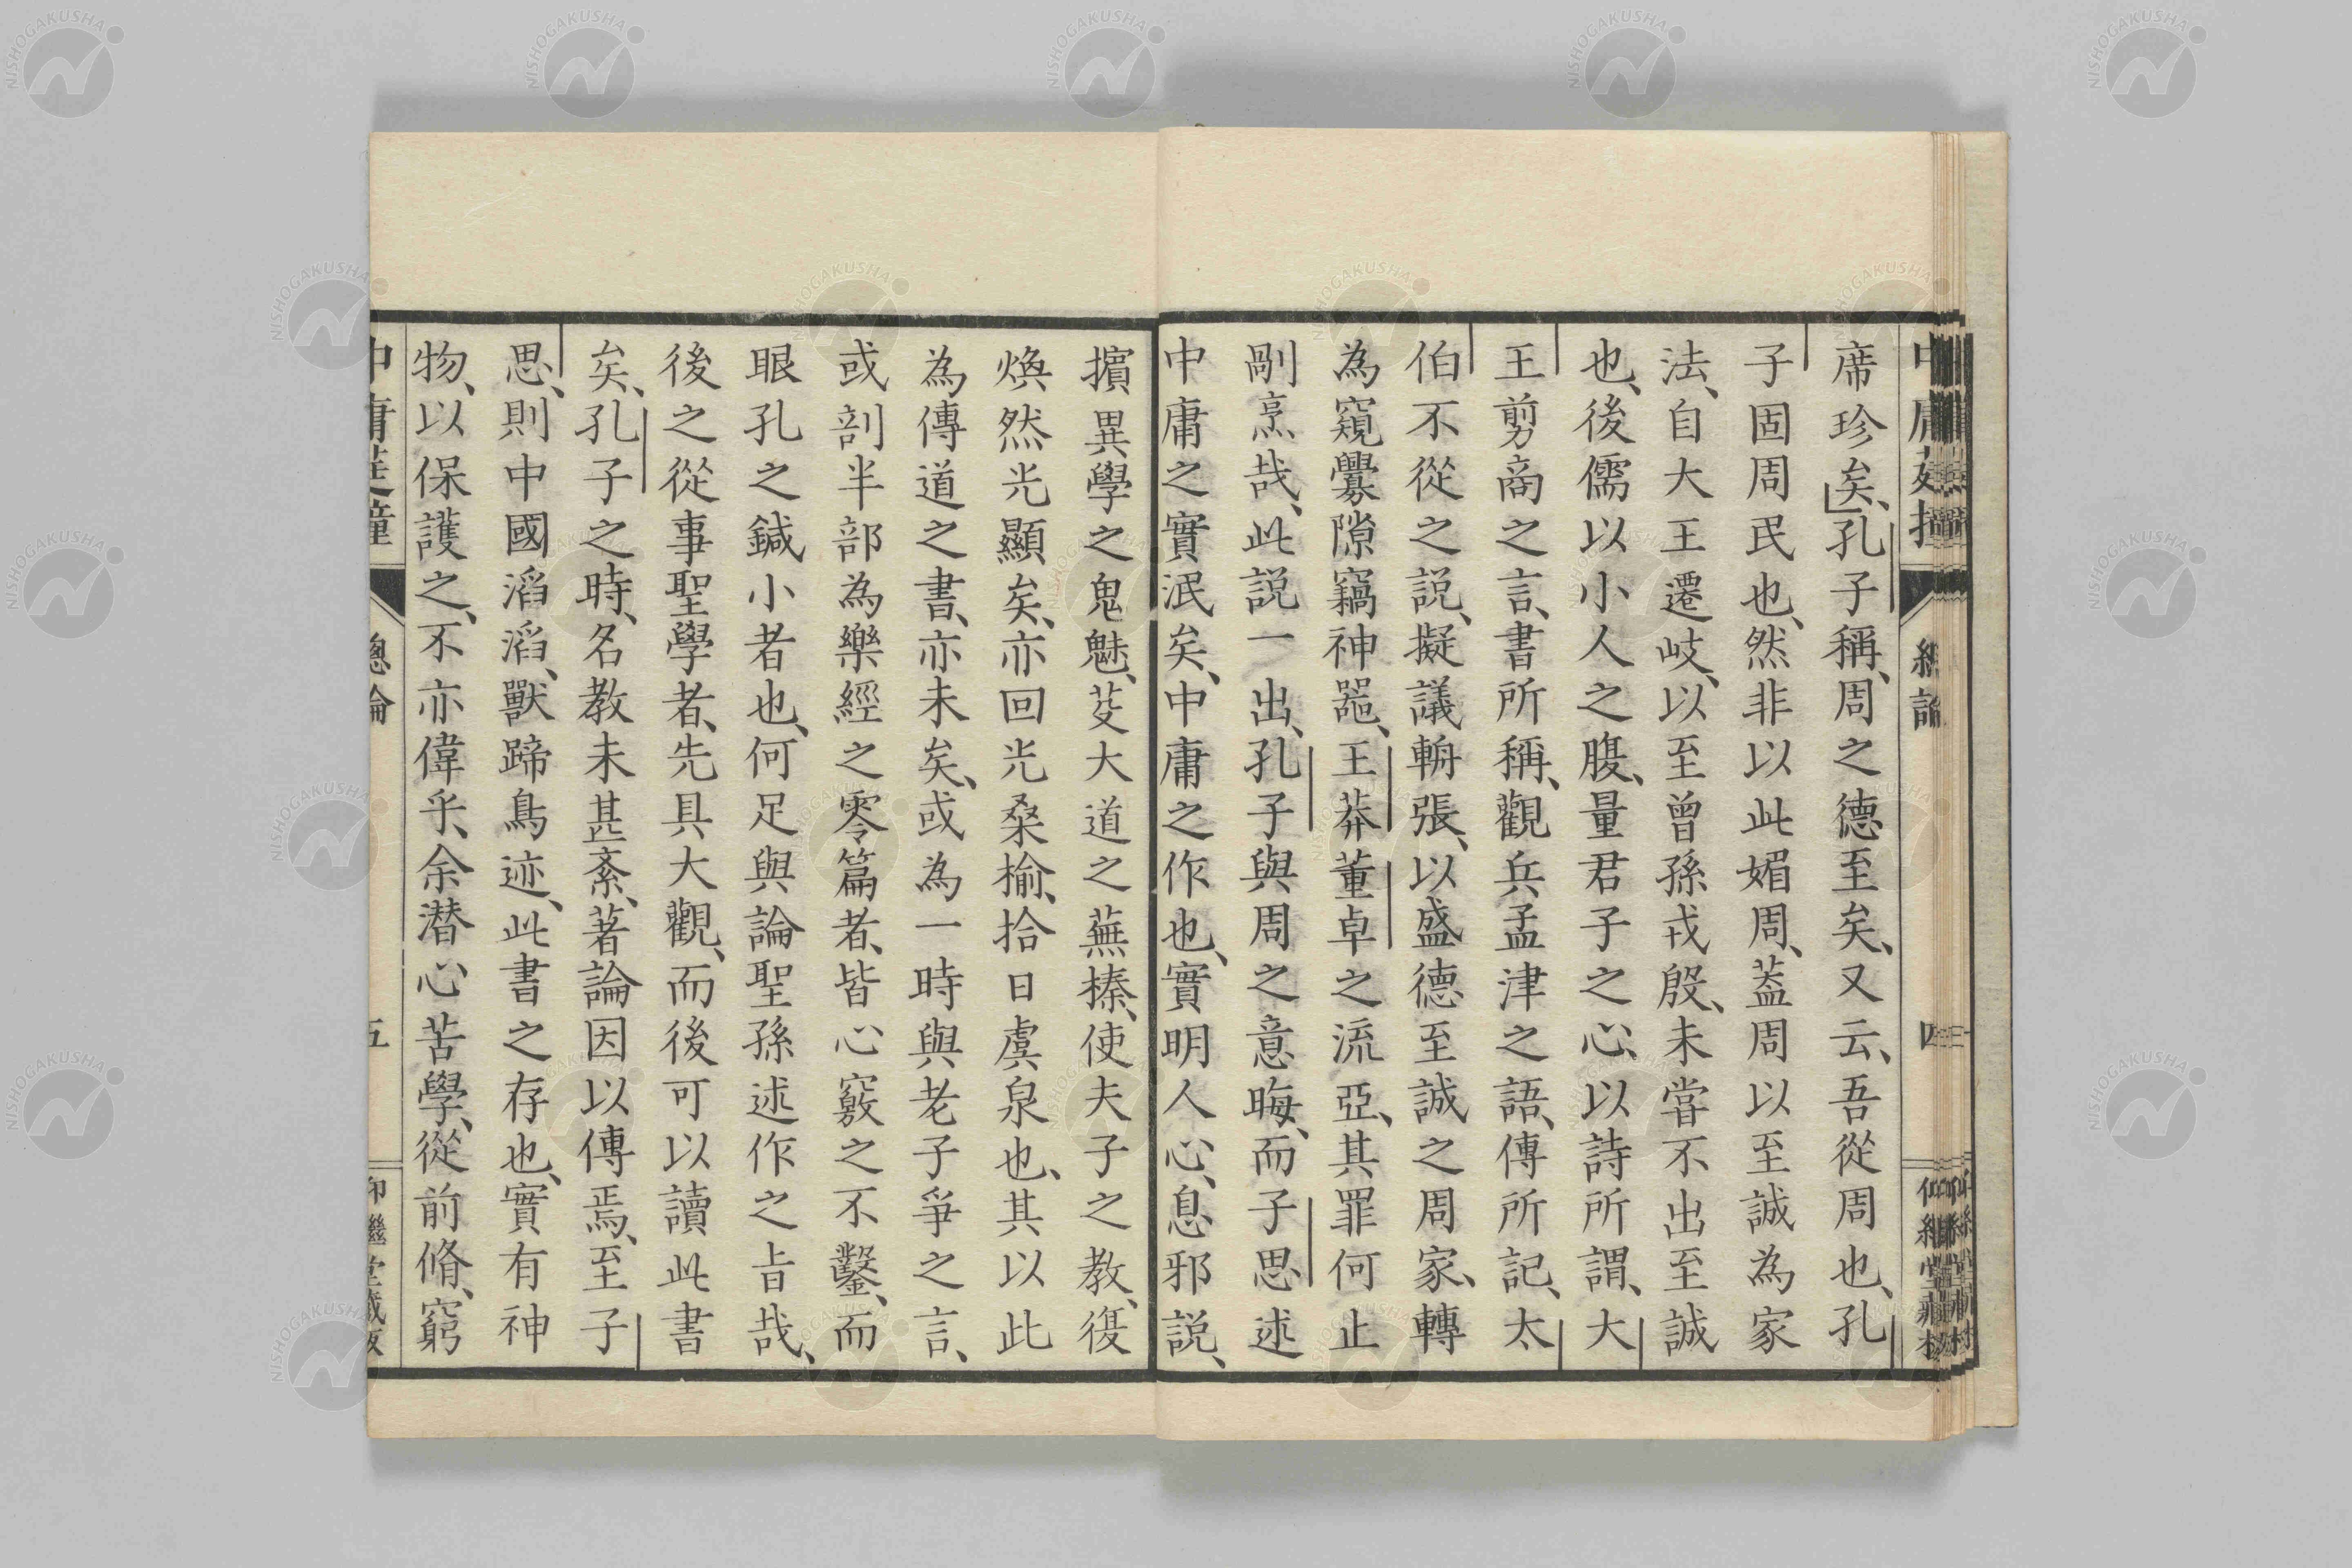 席珍矣、孔子稱、周之德至矣、又云、吾從周也、孔
子固周民也、然非以此媚周、蓋周以至誠為家
法、自大王遷岐、以至曾孫戎殷、未甞不出至誠
也、後儒以小人之腹、量君子之心、以詩所謂、大
王剪商之言、書所稱、觀兵孟津之語、傳所記、太
伯不從之説、擬議輈張、以盛德至誠之周家、轉
為窺釁隙竊神噐、王莽董卓之流亞、其罪何止
剮烹哉、此説一出、孔子與周之意晦、而子思述
中庸之實泯矣、中庸之作也、實明人心、息邪説、
擯異學之鬼魅、芟大道之蕪榛、使夫子之教、復
煥然光顯矣、亦回光桑榆、拾日虞泉也、其以此
為傳道之書、亦未矣、或為一時與老子爭之言、
或剖半部為樂經之零篇者、皆心竅之不鑿、而
眼孔之鍼小者也、何足與論聖孫述作之旨哉、
後之從事聖學者、先具大觀、而後可以讀此書
矣、孔子之時、名教未甚紊、著論因以傳焉、至子
思、則中國滔滔、獸蹄鳥迹、此書之存也、實有神
物、以保護之、不亦偉乎、余潛心苦學、從前脩、窮
總論
五
NISHOGAKUSHA